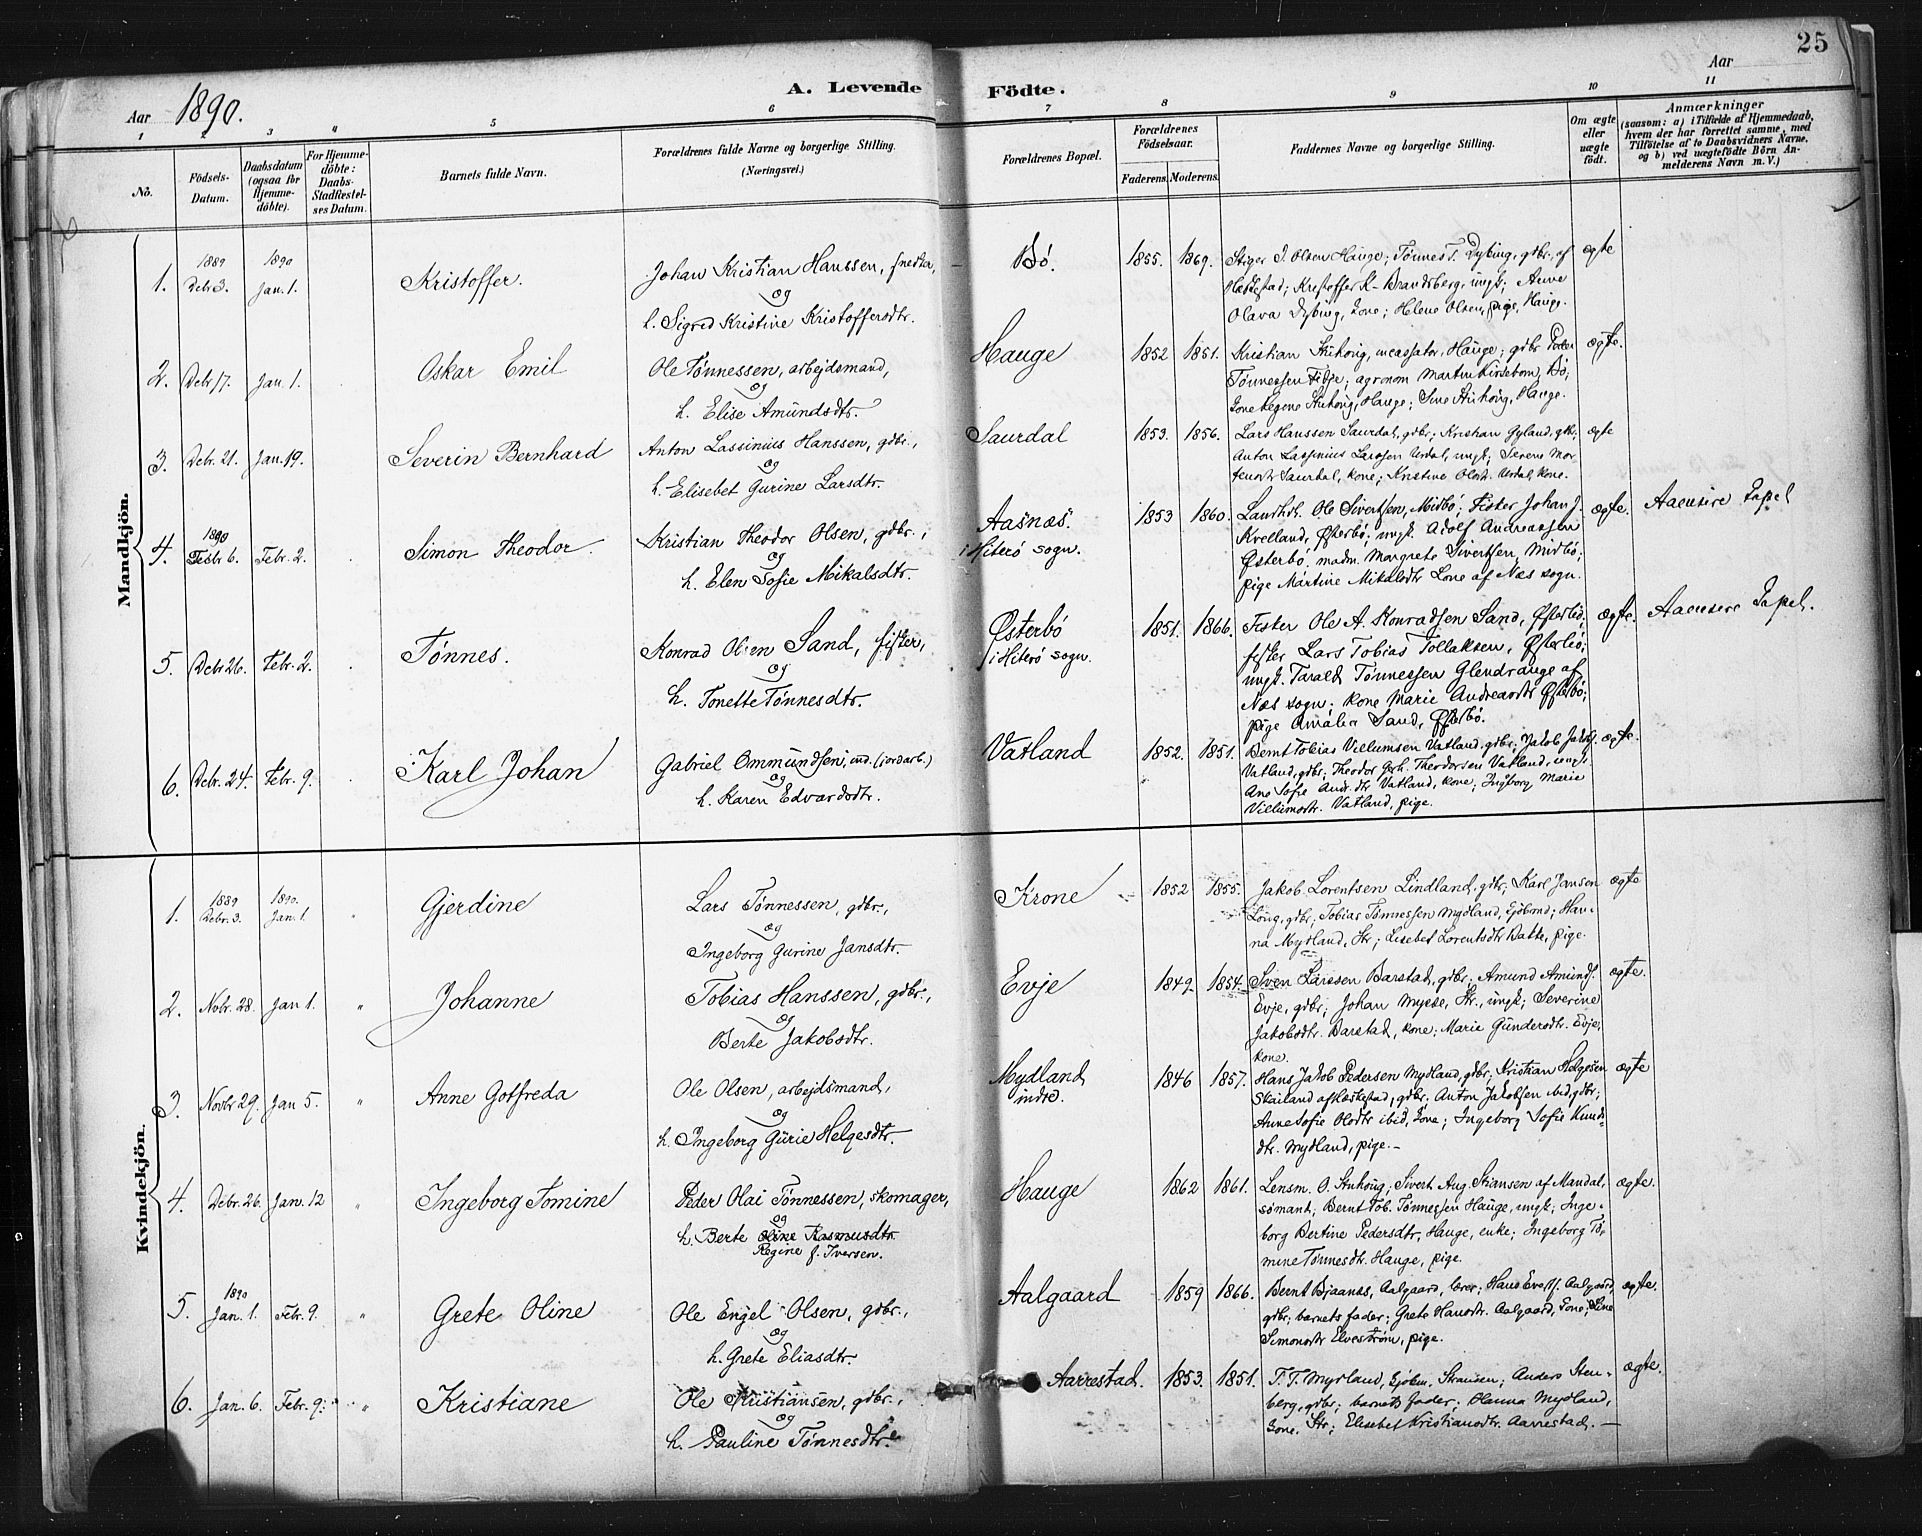 25
Aar 1890. A. Levende Fødte. Aar
1 2 3 " 5 6 7 8 9 10 11
No.
Födsels-
Datum.
Daabsdatum
(ogsaa for
Hjemme-
döbte).
For Hjemme-
döbte:
Daabs-
Stadfæstel-
ses Datum.
Barnets fulde Navn.
Forældrenes fulde Navne og borgerlige Stilling.
(Næringsvei.)
Forældrenes Bopæl.
Forældrenes
Födselsaar.
Faderens. Moderens.
Faddernes Navne og borgerlige Stilling.
Om ægte
eller
uægte
födt.
Anmærkninger
(saasom: a) i Tilfælde af Hjemmedaab,
hvem der har forrettet samme, med
Tilföielse af to Daabsvidners Navne,
og b) ved uægtefödte Börn An-
melderens Navn m. V.)
Mandkjön.
1. 1889 Debr 3. 1890 Jan. 1. Kristoffer.
Johan Kristian Hanssen,
og
h. Sigred Kristine Kristoffersdtr.
Bö. 1855. 1869.
Stiger J. Olsen Hauge; Tønnes T. Dybing, gdbr. af
Hæskestad; Kristoffer K. Brandsberg, ungk; Anne
Olava Dybing, kone; Helene Olsen, pige, Hauge.
ægte
2. Debr 17. Jan. 1. Oskar Emil
Ole Tønnessen, arbejdsmand,
og
h. Elise Amundsdtr.
Hauge 1852 1851.
Kristian Stuhoug, incassator, Hauge; gdbr. Peder
Tønnessen Eltje; agronom Martin Kirsebom, Bö;
kone Regine Stuhoug, Hauge; Sine Stuhoug, Hauge.
ægte.
3. Debr. 21. Jan. 19. Severin Bernhard
Anton Lassinius Hanssen, gdbr.,
og
h. Elisebet Gurine Larsdtr.
Saurdal 1853. 1856.
Lars Hanssen Saurdal, gdbr; Kristian Gyland, gdbr;
Anton Lassinius Larssen Urdal, ungk; Serene Mor-
tensdtr Saurdal, kone; Kristine Olsdtr. Urdal, kone.
ægte
4. 1890 Febr 6. Febr. 2. Simon Theodor.
Kristian Theodor Olsen, gdbr.,
og
h. Elen Sofie Mikalsdtr.
Aasnæs.
i Hiterö sogn.
1853 1860.
Landh. Ole Sivertsen, Midbö; Fister Johan J.
Kvelland, Østerbö; ungk. Adolf Andreassen
Østerbö; madm. Margrete Sivertsen, Midbö;
pige Martine Mikalsdtr Lone af Næs sogn.
ægte. Aaensire Kapel
5. Debr 26. Febr. 2. Tønnes.
Konrad Olsen Sand, fisker,
og
h. Tonette Tønnesdtr.
Østerbö
i Hiterö sogn.
1851. 1866.
Fisker Ole A. Konradsen Sand, Østerbö;
fisker Lars Tobias Tollaksen, Østerbö;
ungk. Tarald Tønnessen Glendrange af
Næs sogn; kone Marie Andreasdtr Østerbö;
pige Amalia Sand, Østerbö.
ægte. Aaensire Kapel.
6. Debr. 24. Febr. 9. Karl Johan
Gabriel Ommundsen, ind. (jordarb.)
og
h. Karen Edvardsdtr.
Vatland 1852. 1851.
Bernt Tobias Villumsen Vatland, gdbr; Jakob Jakobs.
Vatland, gdbr; Theodor Gerh. Theodorsen Vatland, ungk.
Ane Sofie Andr.dtr Vatland, kone; Ingeborg Marie
Villumsdtr. Vatland, pige.
ægte.
Kvindekjön.
1. 1889 Debr. 3. 1890. Jan. 1. " Gjerdine
Lars Tønnessen, gdbr.,
og
Ingeborg Gurine Jansdtr.
Krone 1852 1855.
Jakob Lorentsen Lindland, gdbr; Karl Jansen
Long, gdbr; Tobias Tønnessen Mydland, Ejdbmd; Han-
na Mydland, Str; Lisebet Lorentsdtr Bakke, pige.
ægte
2. Novbr. 28. Jan 1. " Johanne
Tobias Hanssen, gdbr.,
og
Berte Jakobsdtr.
Evje 1849 1854.
Sven Larssen Barstad, gdbr; Amund Amunds.
Evje, gdbr; Johan Mysse, Str., ungk; Severine
Jakobsdtr. Barstad, kone; Marie Gundersdtr. Evje,
kone.
ægte.
3. Novbr 29. Jan 5. " Anne Gotfreda
Ole Olsen, arbejdsmand,
og
h. Ingeborg Gurie Helgesdtr.
Mydland
indre.
1846 1857.
Hans Jakob Pedersen Mydland, gdbr; Kristian Helgesen
Skailand af Hæskestad, gdbr; Anton Jakobsen ibid, gdbr;
Anne Sofie Olsdtr ibid, kone; Ingeborg Sofie Knuds-
dtr. Mydland, pige.
ægte
4. Debr. 26. Jan. 12 " Ingeborg Tomine
Peder Olai Tønnessen, skomager,
og
h. Berte Oline Rasmusdtr
Regine f. Iversen.
Hauge 1862 1861.
Lensm. O. Stuhoug; Sivert Aug. Stiansen af Mandal,
sömant; Bernt Tob. Tønnessen Hauge, ungk; Inge-
borg Bertine Pedersdtr, Hauge, enke; Ingeborg To-
mine Tønnesdtr. Hauge, pige.
ægte.
5. 1890 Jan. 1. Febr. 9. " Grete Oline
Ole Engel Olsen, gdbr.,
og
h. Grete Eliasdtr.
Aalgaard 1859 1866.
Bernt Bjaanæs, Aalgaard, lærer; Hans Evalds. Aalgaard,
gdbr; barnets fader; Grete Hansdtr. Aalgaard, kone; Sine
Simonsdtr Elvestrøm, pige.
ægte.
6. Jan. 6. Febr. 9. " Kristiane
Ole Kristiansen, gdbr.,
og
h. Pauline Tønnesdtr.
Aarrestad. 1853. 1851.
T. T. Mydland, Ejdbm. Stransen; Anders Sten-
berg, gdbr; barnets fader; Hanna Mydland,
kone. Str; Elisebet Kristiansdtr. Aarrestad.
ægte.